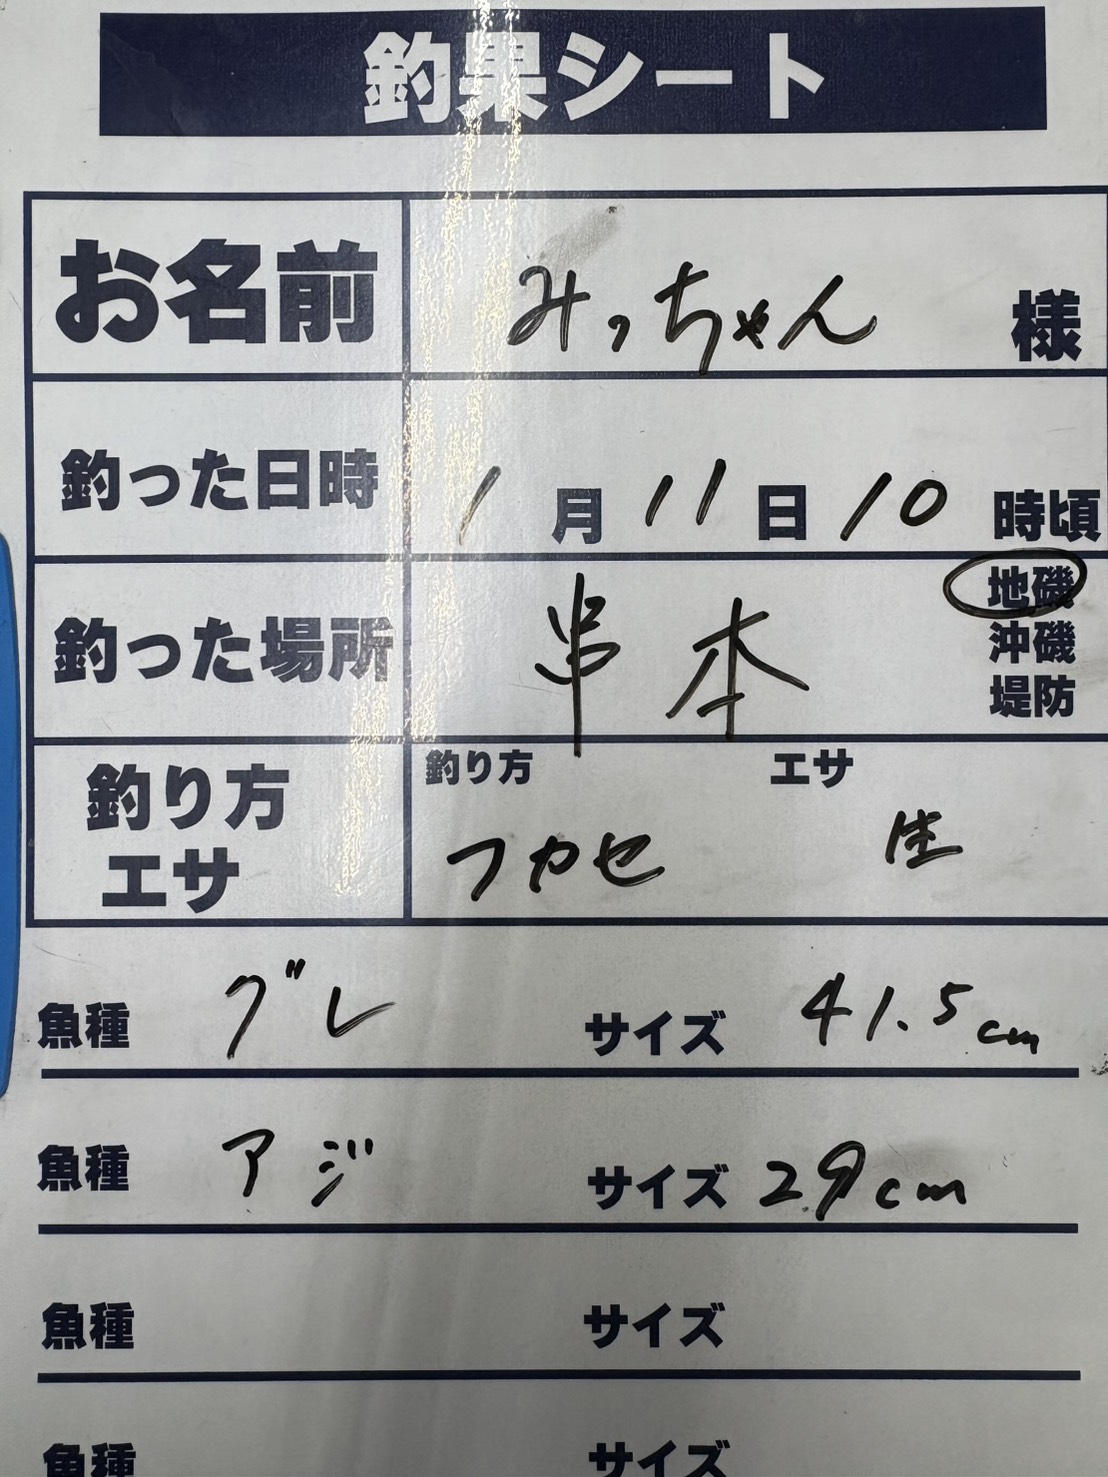 釣果シート
お名前 みっちゃん 様
釣った日時 1月11日10時頃
釣った場所 串本 地磯
沖磯
堤防
釣り方 エサ
釣り方 フカセ 生
エサ
魚種 グレ サイズ 41.5cm
魚種 アジ サイズ 29cm
魚種 サイズ
魚種 サイズ